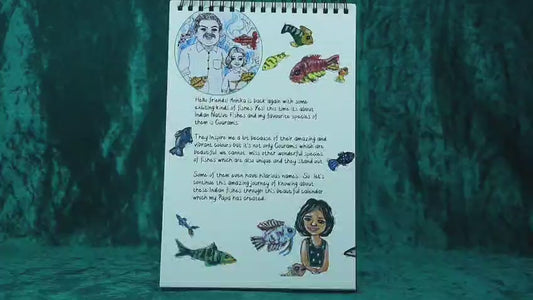 Hello friends! Monika is back again with some
exciting kinds of fishes. Yes! this time it's about
Indian Native Fishes and my favourite species of
them is Gouramis.
They Inspire me a lot because of their amazing and
vibrant colours but it's not only Gouramis which are
beautiful we cannot miss other wonderful species
of fishes which are also unique and they stand out.
Some of them even have hilarious names. So let's
continue this amazing journey of knowing about
these Indian fishes through this beautiful calendar
which my Papa has created.